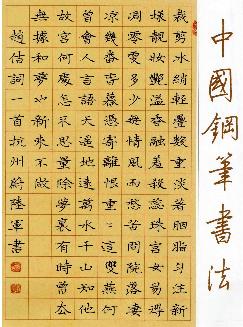 中國鋼筆書法
裁剪冰綃輕疊數重淡著胭脂匀注新
樣靚妝豔溢香融羞殺蕊珠宮女易得
凋零更多少無情風雨愁苦問院落淒
涼幾番春暮憑寄離恨重重這雙燕何
曾會人言語天遙地遠萬水千山知他
故宮何處怎不思量除夢裏有時曾去
無據和夢也新來不做
趙佶詞一首杭州蔚陸軍書